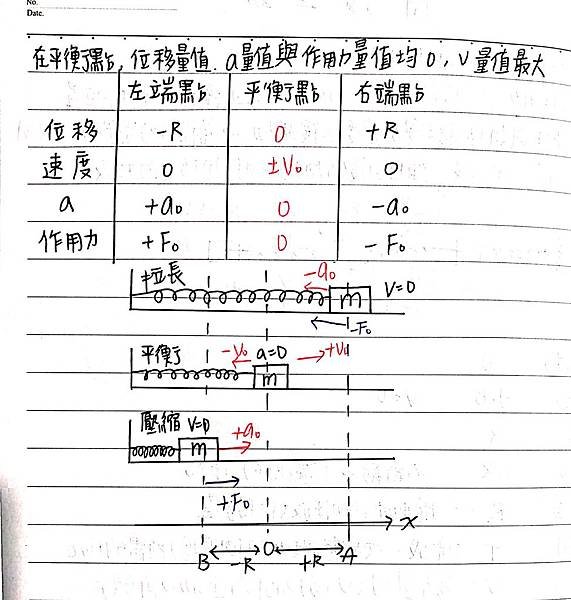 No.
Date.
在平衡點, 位移量值. a量值與作用力量值均0, V量值最大
左端點 平衡點 右端點
位移 -R 0 +R
速度 0 ±V₀ 0
a +a₀ 0 -a₀
作用力 +F₀ 0 -F₀
拉長 -a₀
m V=0
-F₀
平衡 -V₀ a=0 +V₀
m
壓縮 V=0 +a₀
m
+F₀
x
B -R O +R A